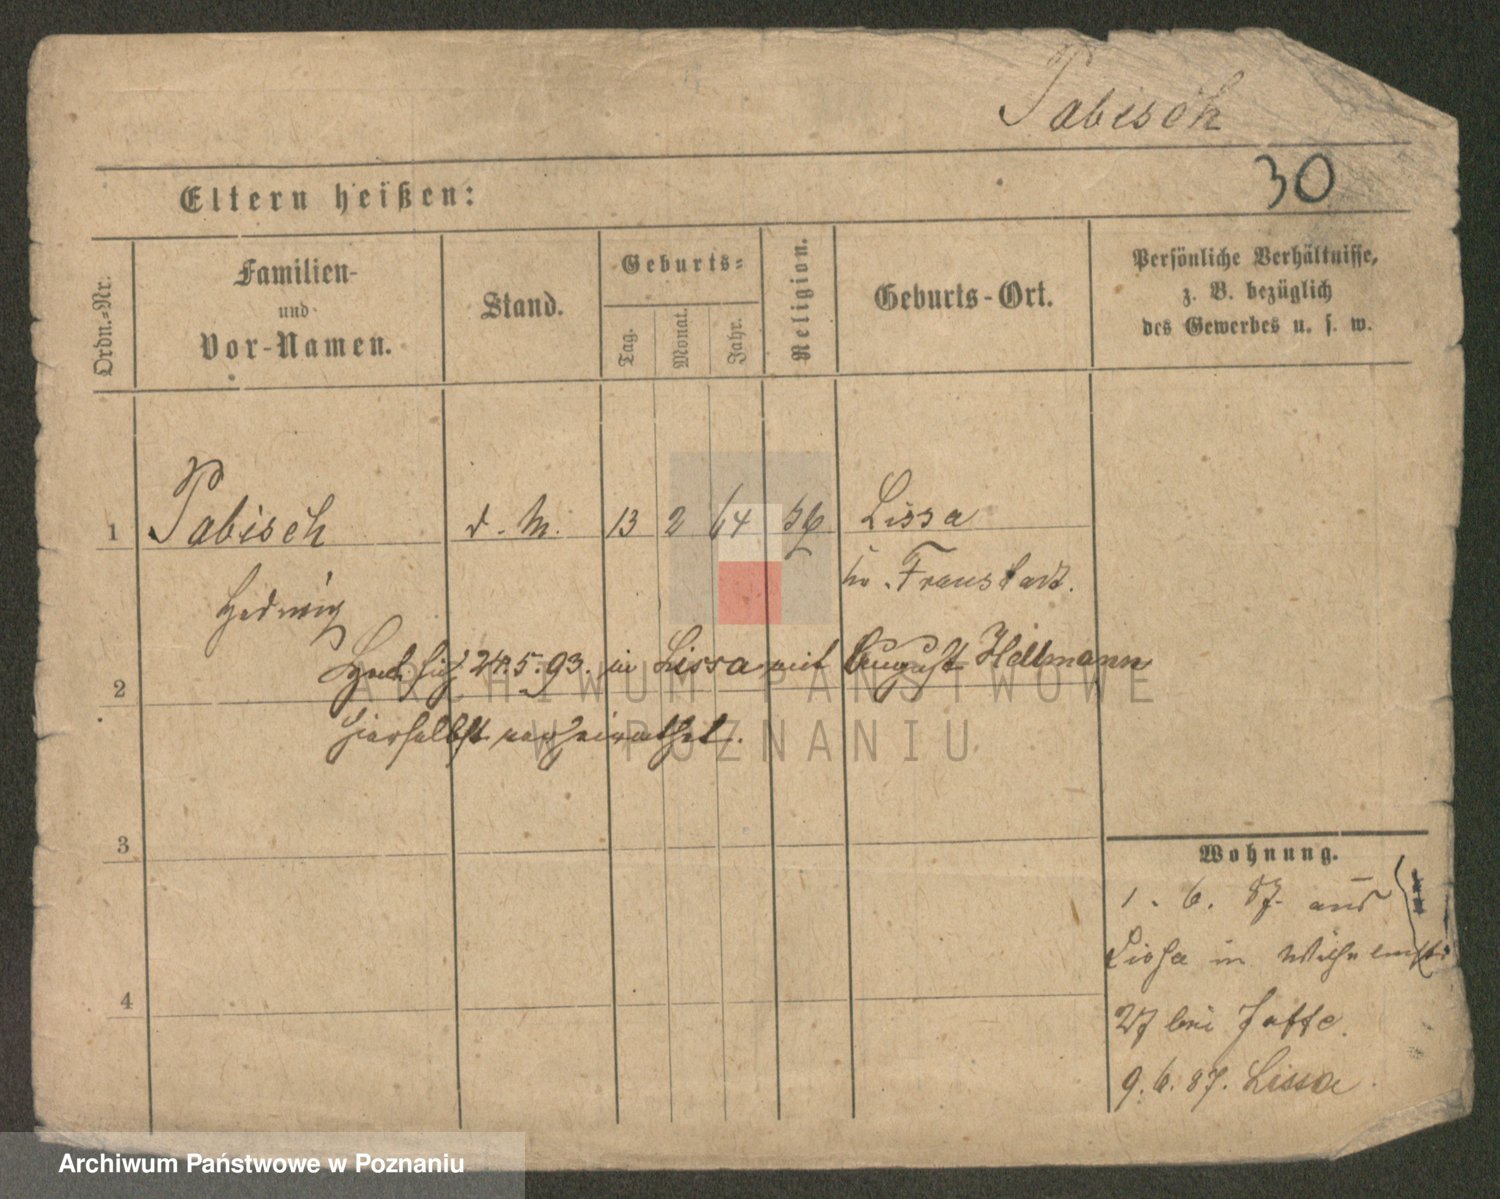 Pabisch
30
Eltern heißen:
Ordn.-Nr.
Familien-
und
Vor-Namen.
Stand.
Geburts-
Tag.
Monat.
Jahr.
Religion.
Geburts-Ort.
Persönliche Verhältnisse,
z. B. bezüglich
des Gewerbes u. s. w.
1 Pabisch d. M. 13 2 64 Lissa
Hedwig Kr. Fraustadt.
Hat sich 24.5.93. in Lissa mit August Hellmann
2
hierselbst verheirathet.
3
4
Wohnung.
1. 6. 87. aus
Lissa in Wilhelmstr
27 bei Jaffe.
9. 6. 87. Lissa
ARCHIWUM PAŃSTWOWE
W POZNANIU
Archiwum Państwowe w Poznaniu